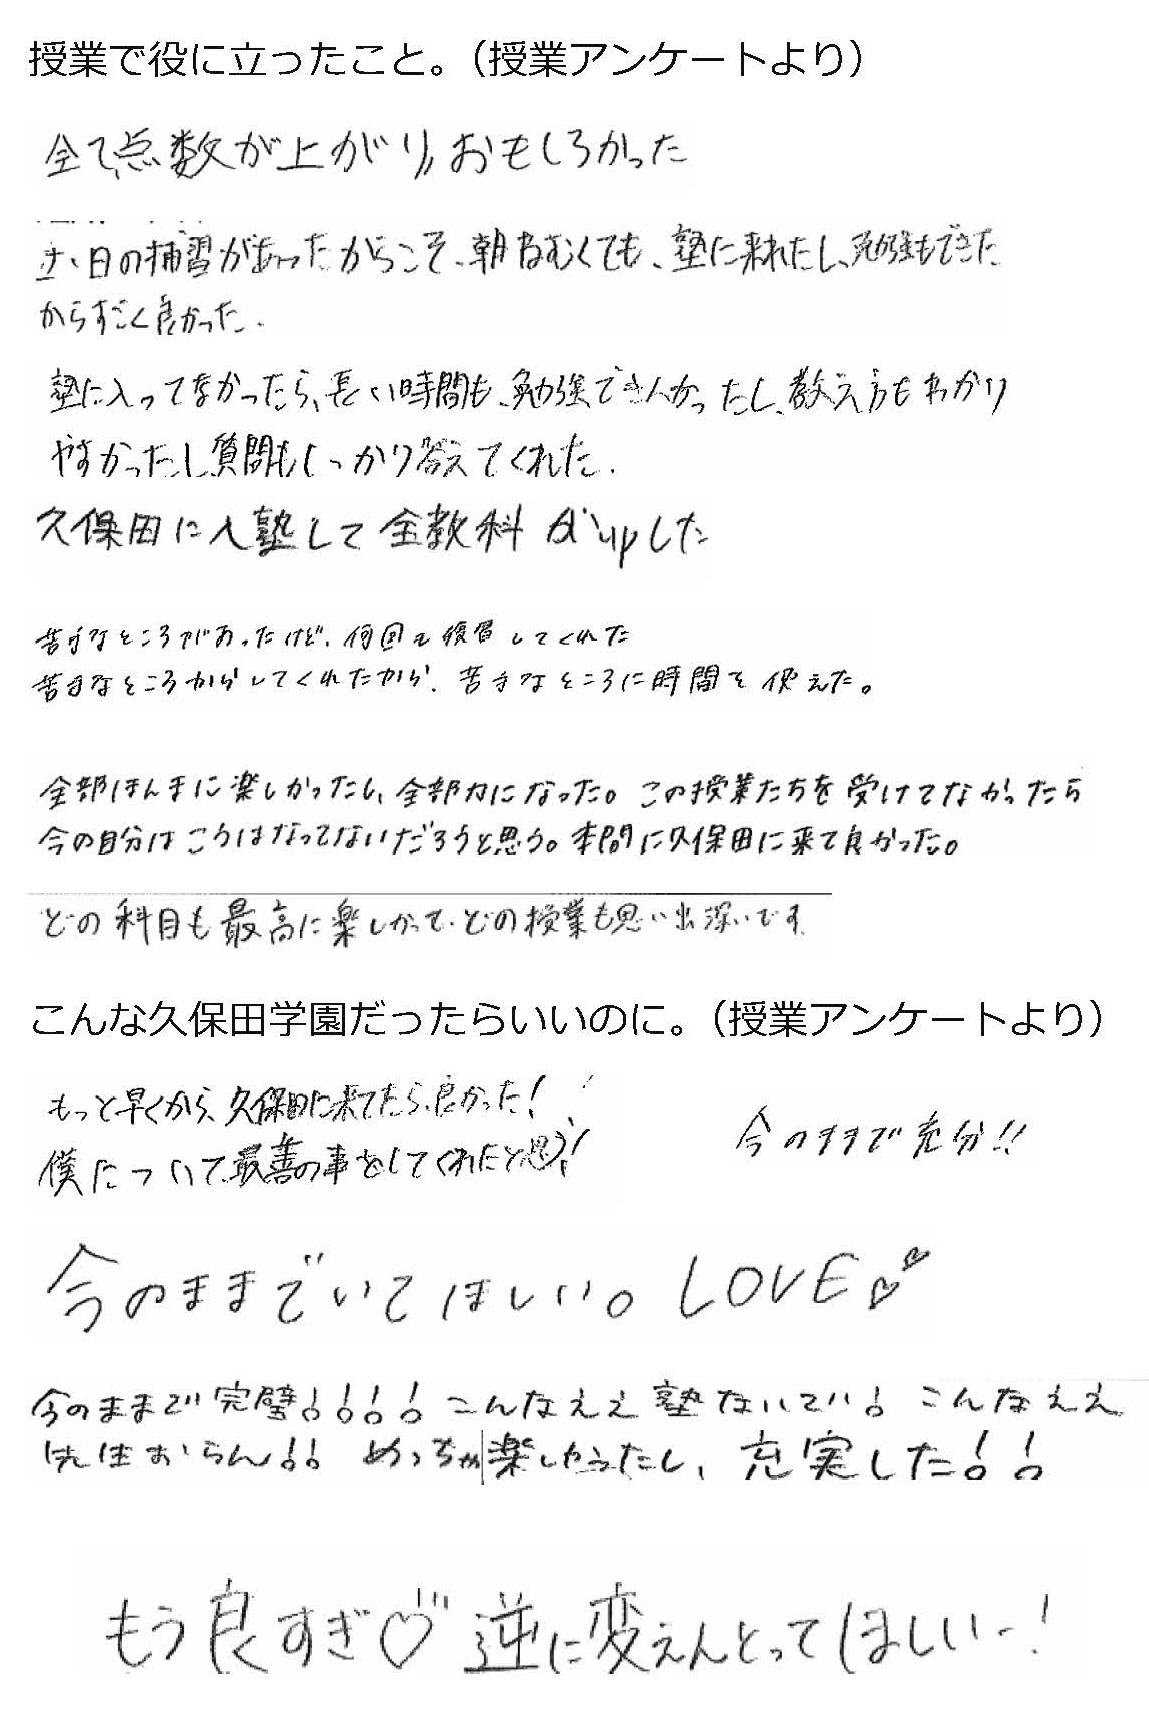 授業で役に立ったこと。（授業アンケートより）
全て点数が上がり、おもしろかった
土・日の補習があったからこそ、朝ねむくても、塾に来れたし、勉強もできた
からすごく良かった．
塾に入ってなかったら、長い時間も、勉強できんかったし、教え方もわかり
やすかったし質問もしっかり答えてくれた．
久保田に入塾して全教科がupした
苦手なところがあったけど、何回も復習してくれた
苦手なところからしてくれたから、苦手なところに時間を使えた。
全部ほんまに楽しかったし、全部力になった。この授業たちを受けてなかったら
今の自分はこうはなってないだろうと思う。本間に久保田に来て良かった。
どの科目も最高に楽しかって、どの授業も思い出深いです
こんな久保田学園だったらいいのに。（授業アンケートより）
もっと早くから、久保田に来てたら、良かった！
僕について最善の事をしてくれたと思う！
今のままで充分!!
今のままでいてほしい。LOVE♡♡
今のままで完璧！！！！こんなええ塾ないで！こんなええ
先生おらん！！めっちゃ楽しかったし、充実した！！
もう良すぎ♡逆に変えんとってほしいー！